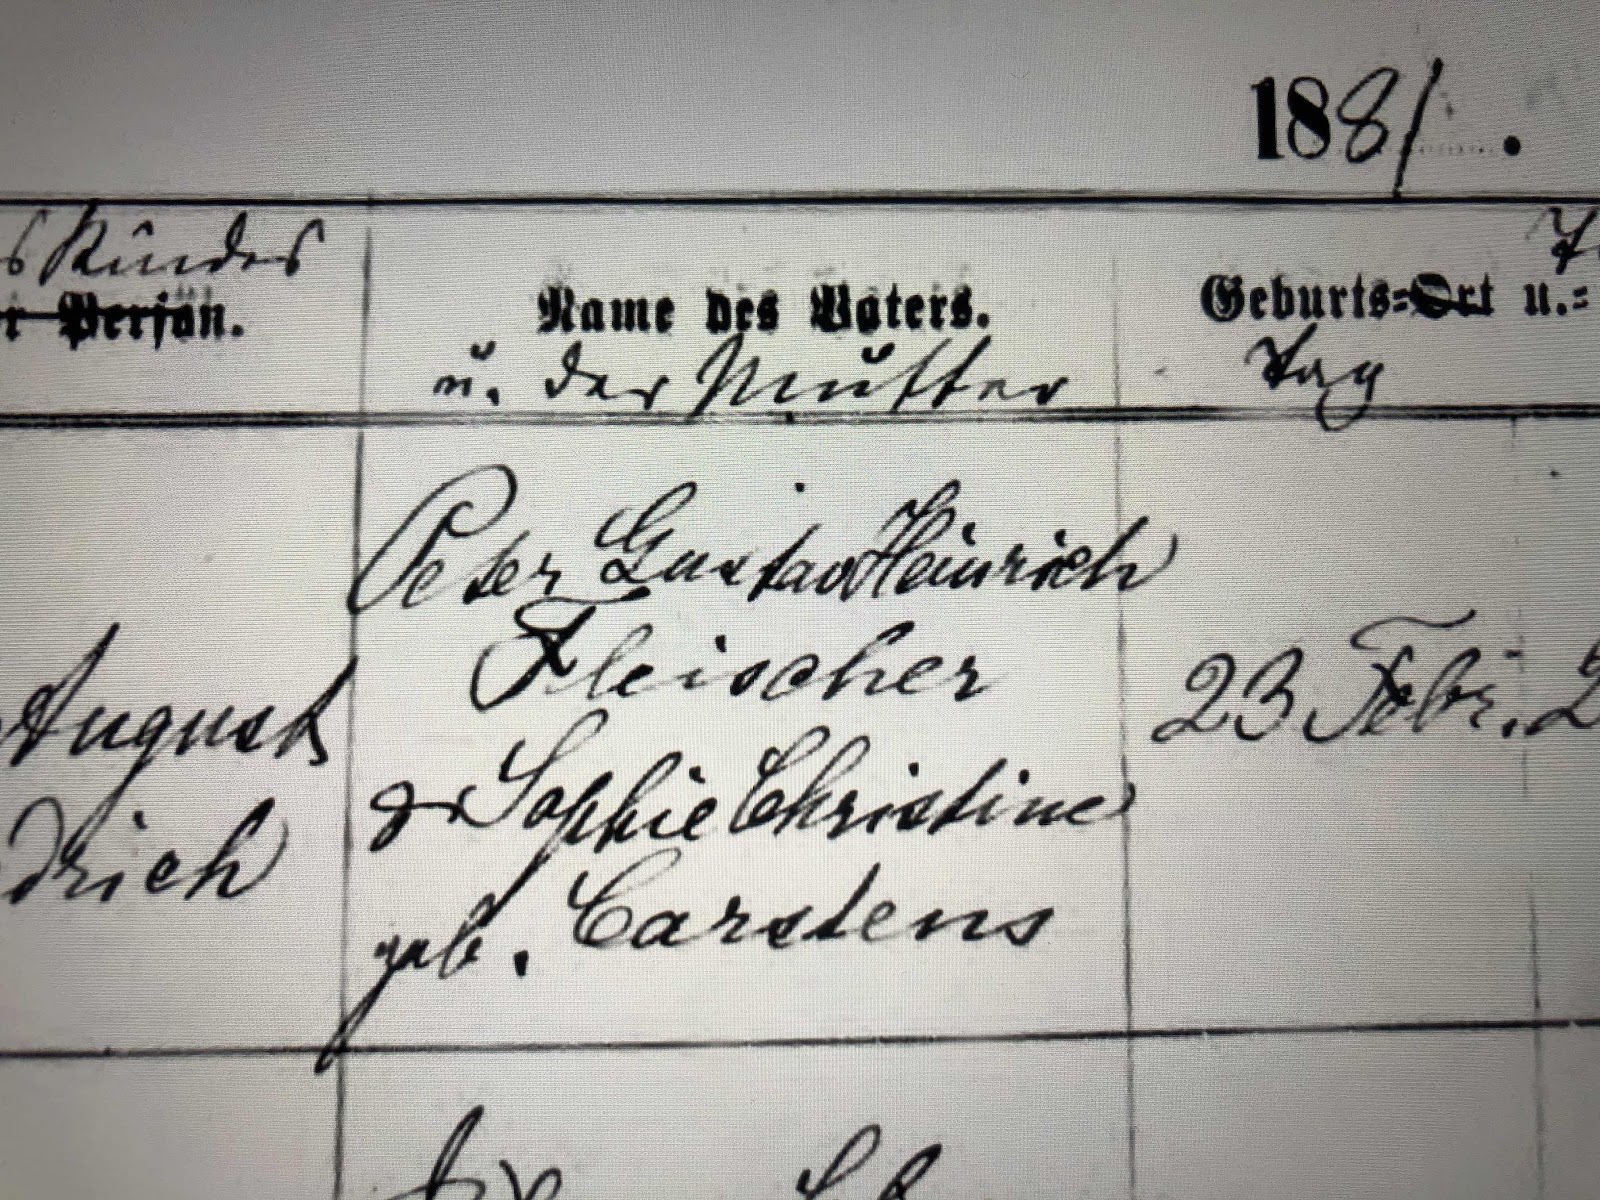 1881.
s Kindes
r Person.
Name des Vaters.
u. der Mutter
Geburts=Ort u.=
Tag
August
drich
Peter Gustav Heinrich
Fleischer
& Sophie Christine
geb. Carstens
23 Febr.